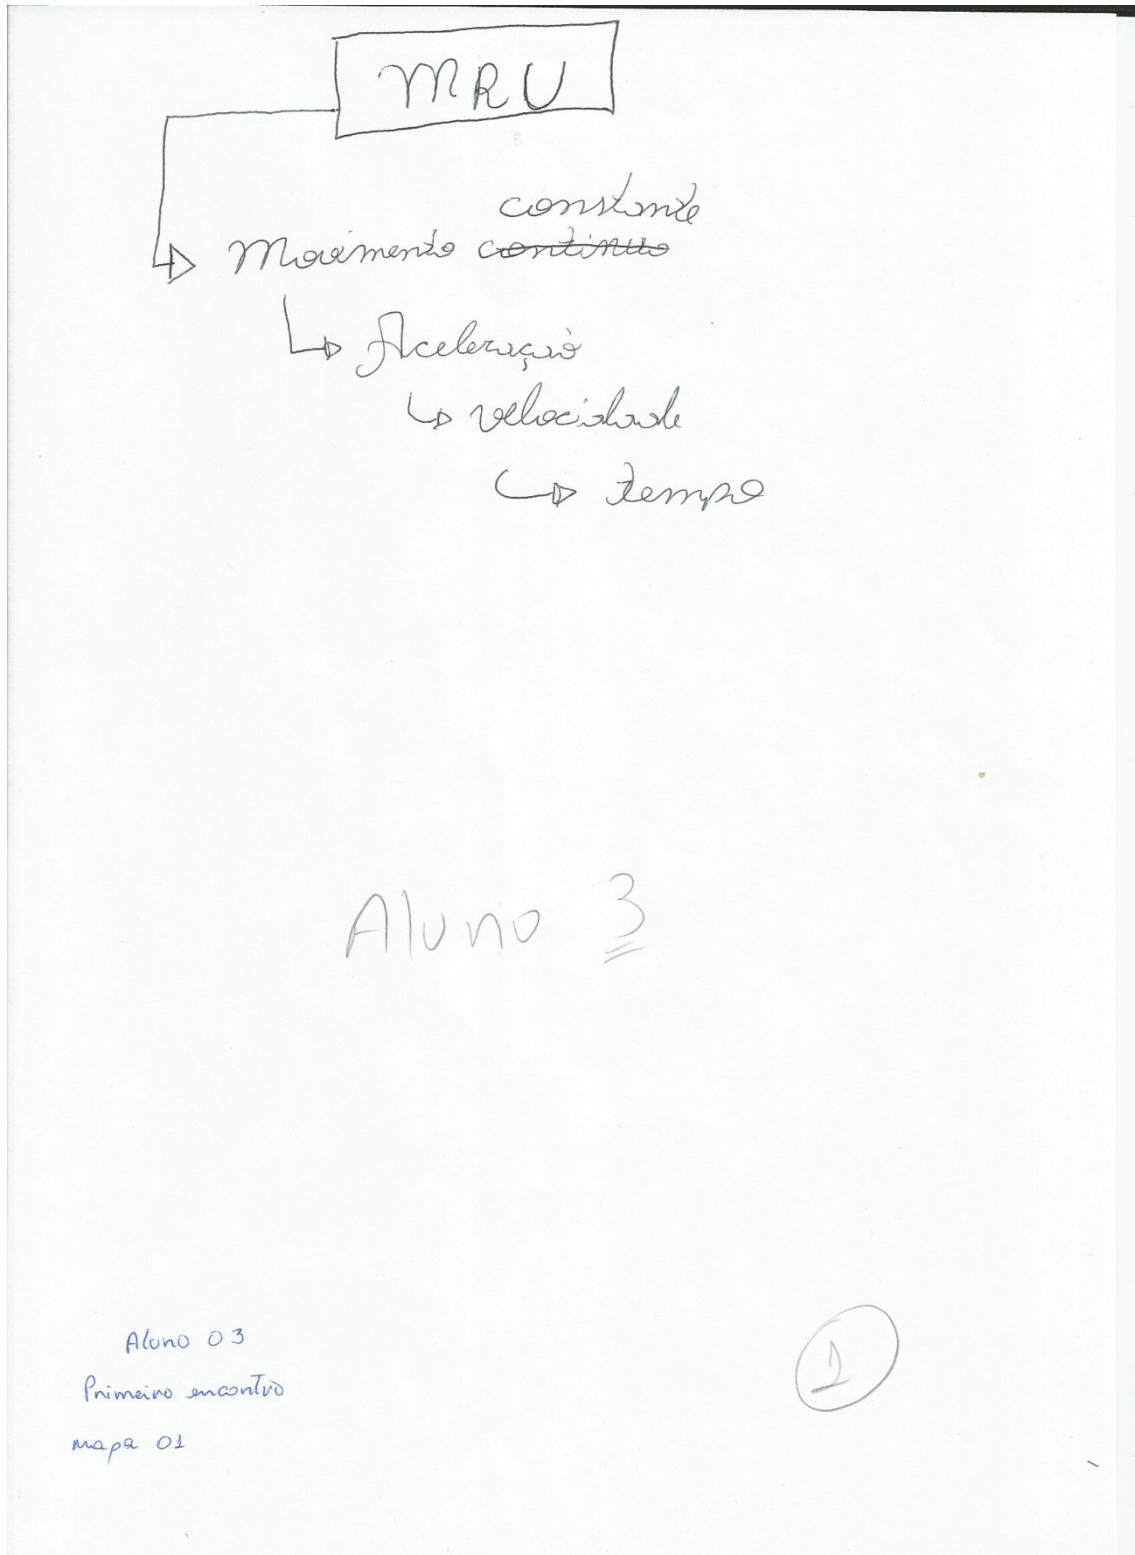 MRU
constante
Movimento continuo
Aceleração
velocidade
tempo
Aluno 3
Aluno 03
Primeiro encontro
mapa 01
1